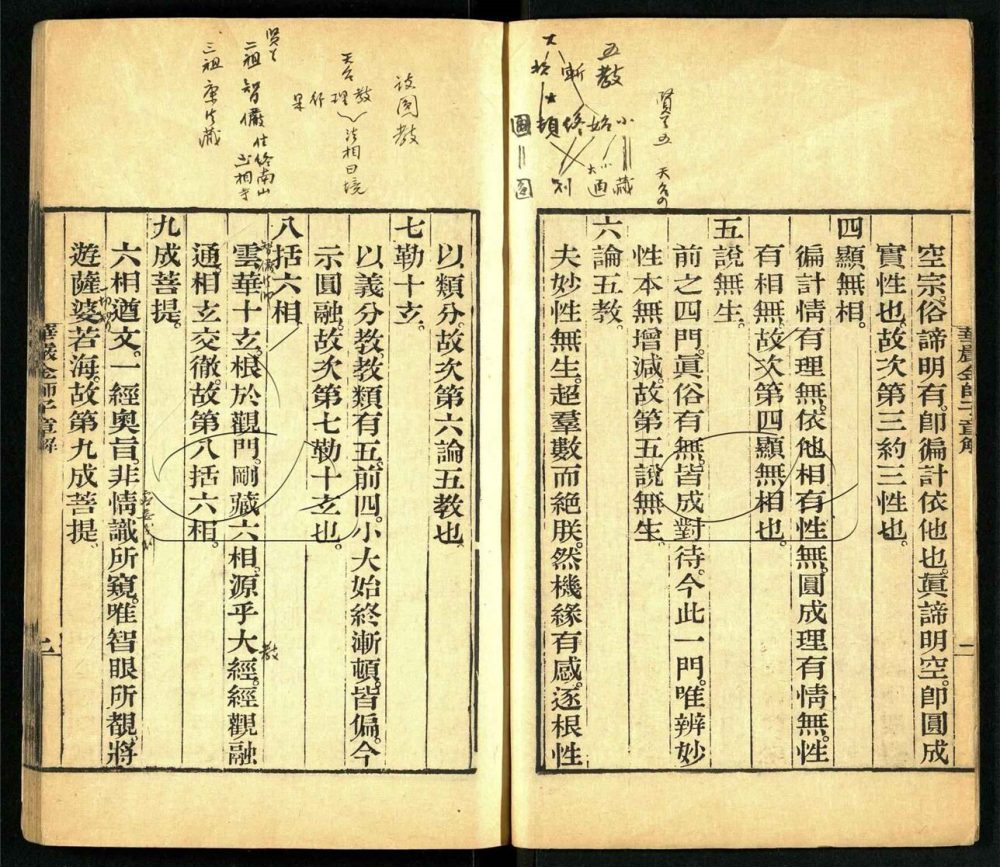 空宗。俗諦明有。卽徧計依他也。眞諦明空。卽圓成
實性也。故次第三約三性也。
四顯無相。
徧計情有理無。依他相有性無。圓成理有情無。性
有相無。故次第四顯無相也。
五說無生。
前之四門。眞俗有無。皆成對待。今此一門。唯辨妙
性本無增減。故第五說無生。
六論五教。
夫妙性無生。超羣數而絕朕。然機緣有感。逐根性
華嚴金師子章解
五教
賢首五 天台四
小 始 終 頓 圓
藏 通 別 圓
以類分。故次第六論五教也。
七勒十玄。
以義分教。教類有五。前四。小大始終漸頓。皆偏。今
示圓融。故次第七勒十玄也。
八括六相。
雲華十玄。根於觀門。剛藏六相。源乎大經。經觀融
通。相玄交徹。故第八括六相。
九成菩提。
六相遒文。一經奧旨。非情識所窺。唯智眼所覩。將
遊薩婆若海。故第九成菩提。
華嚴金師子章解
二
談圓教
天台 教理行果
法相曰境
賢首
二祖智儼 住終南山 至相寺
三祖 法藏
教